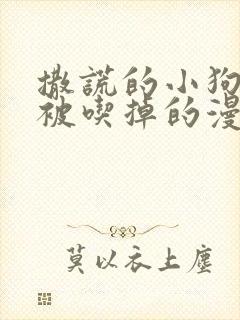 撒謊的小狗
被喫掉的漫
莫以衣上塵